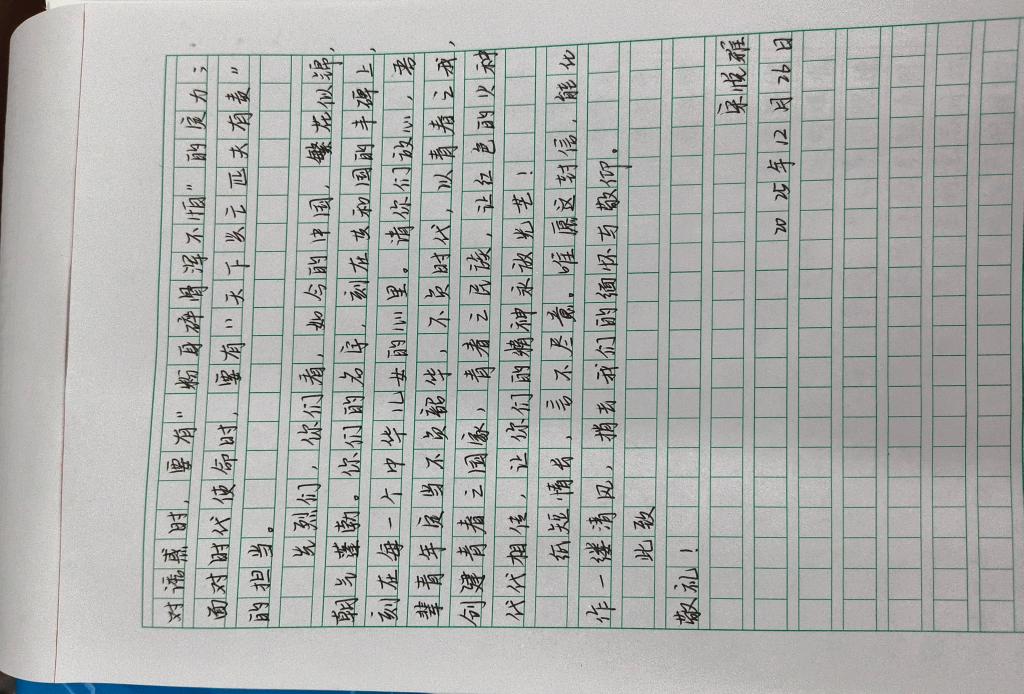 对诱惑时，要有"粉身碎骨浑不怕"的定力；
面对时代使命时，要有"天下兴亡匹夫有责"
的担当。
先烈们，你们看，如今的中国，繁花似锦，
朝气蓬勃。你们的名字，刻在共和国的丰碑上，
刻在每一个中华儿女的心里。请你们放心，吾
辈青年定当不负韶华，不负时代，以青春之我，
创建青春之国家，青春之民族，让红色的火种
代代相传，让你们的精神永放光芒！
纸短情长，言不尽意。唯愿这封信，能化
作一缕清风，捎去我们的缅怀与敬仰。
此致
敬礼！
宋悦雅
2025年12月26日